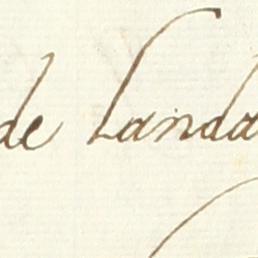 de Landa